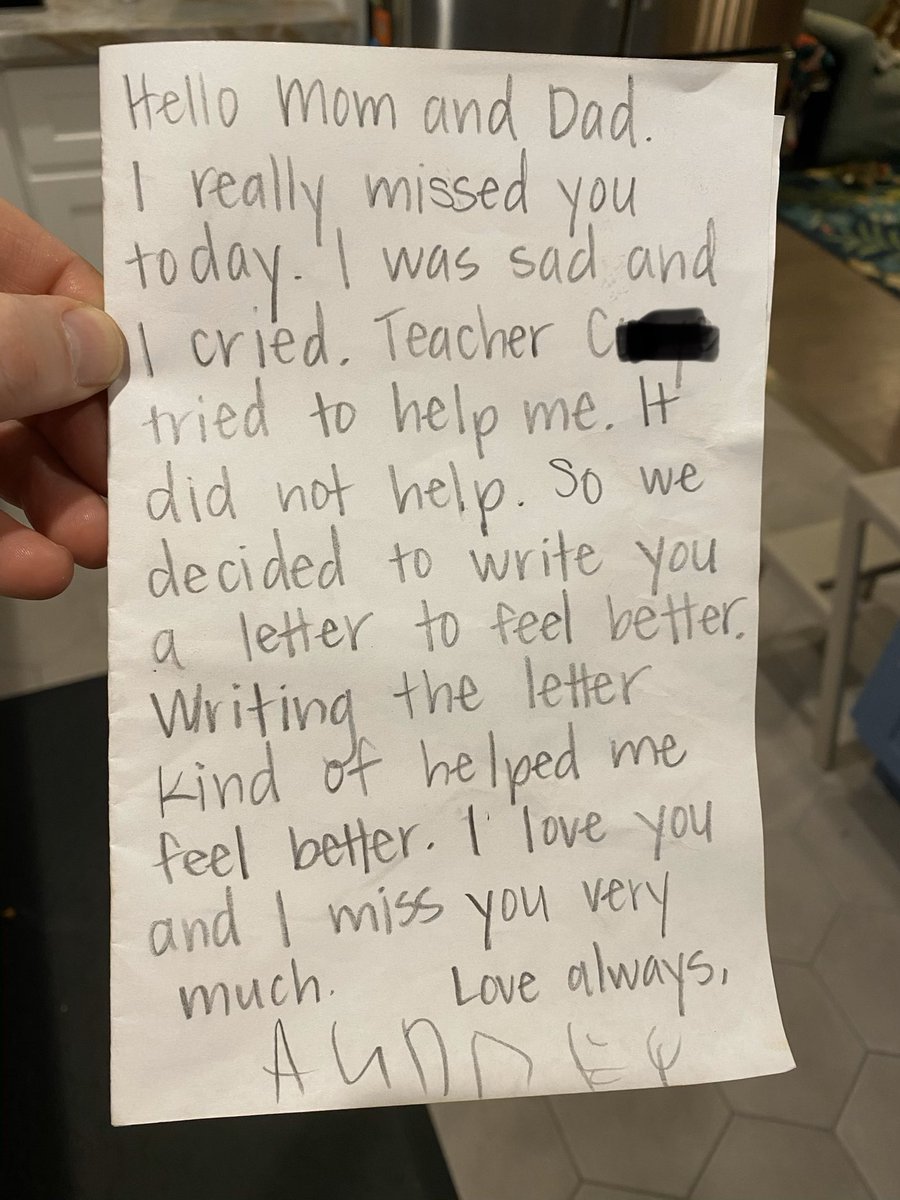 Hello Mom and Dad.
I really missed you
today. I was sad and
I cried. Teacher
tried to help me. It
did not help. So we
decided to write you
a letter to feel better.
Writing the letter
kind of helped me
feel better. I love you
and I miss you very
much. Love always,
AUDREY